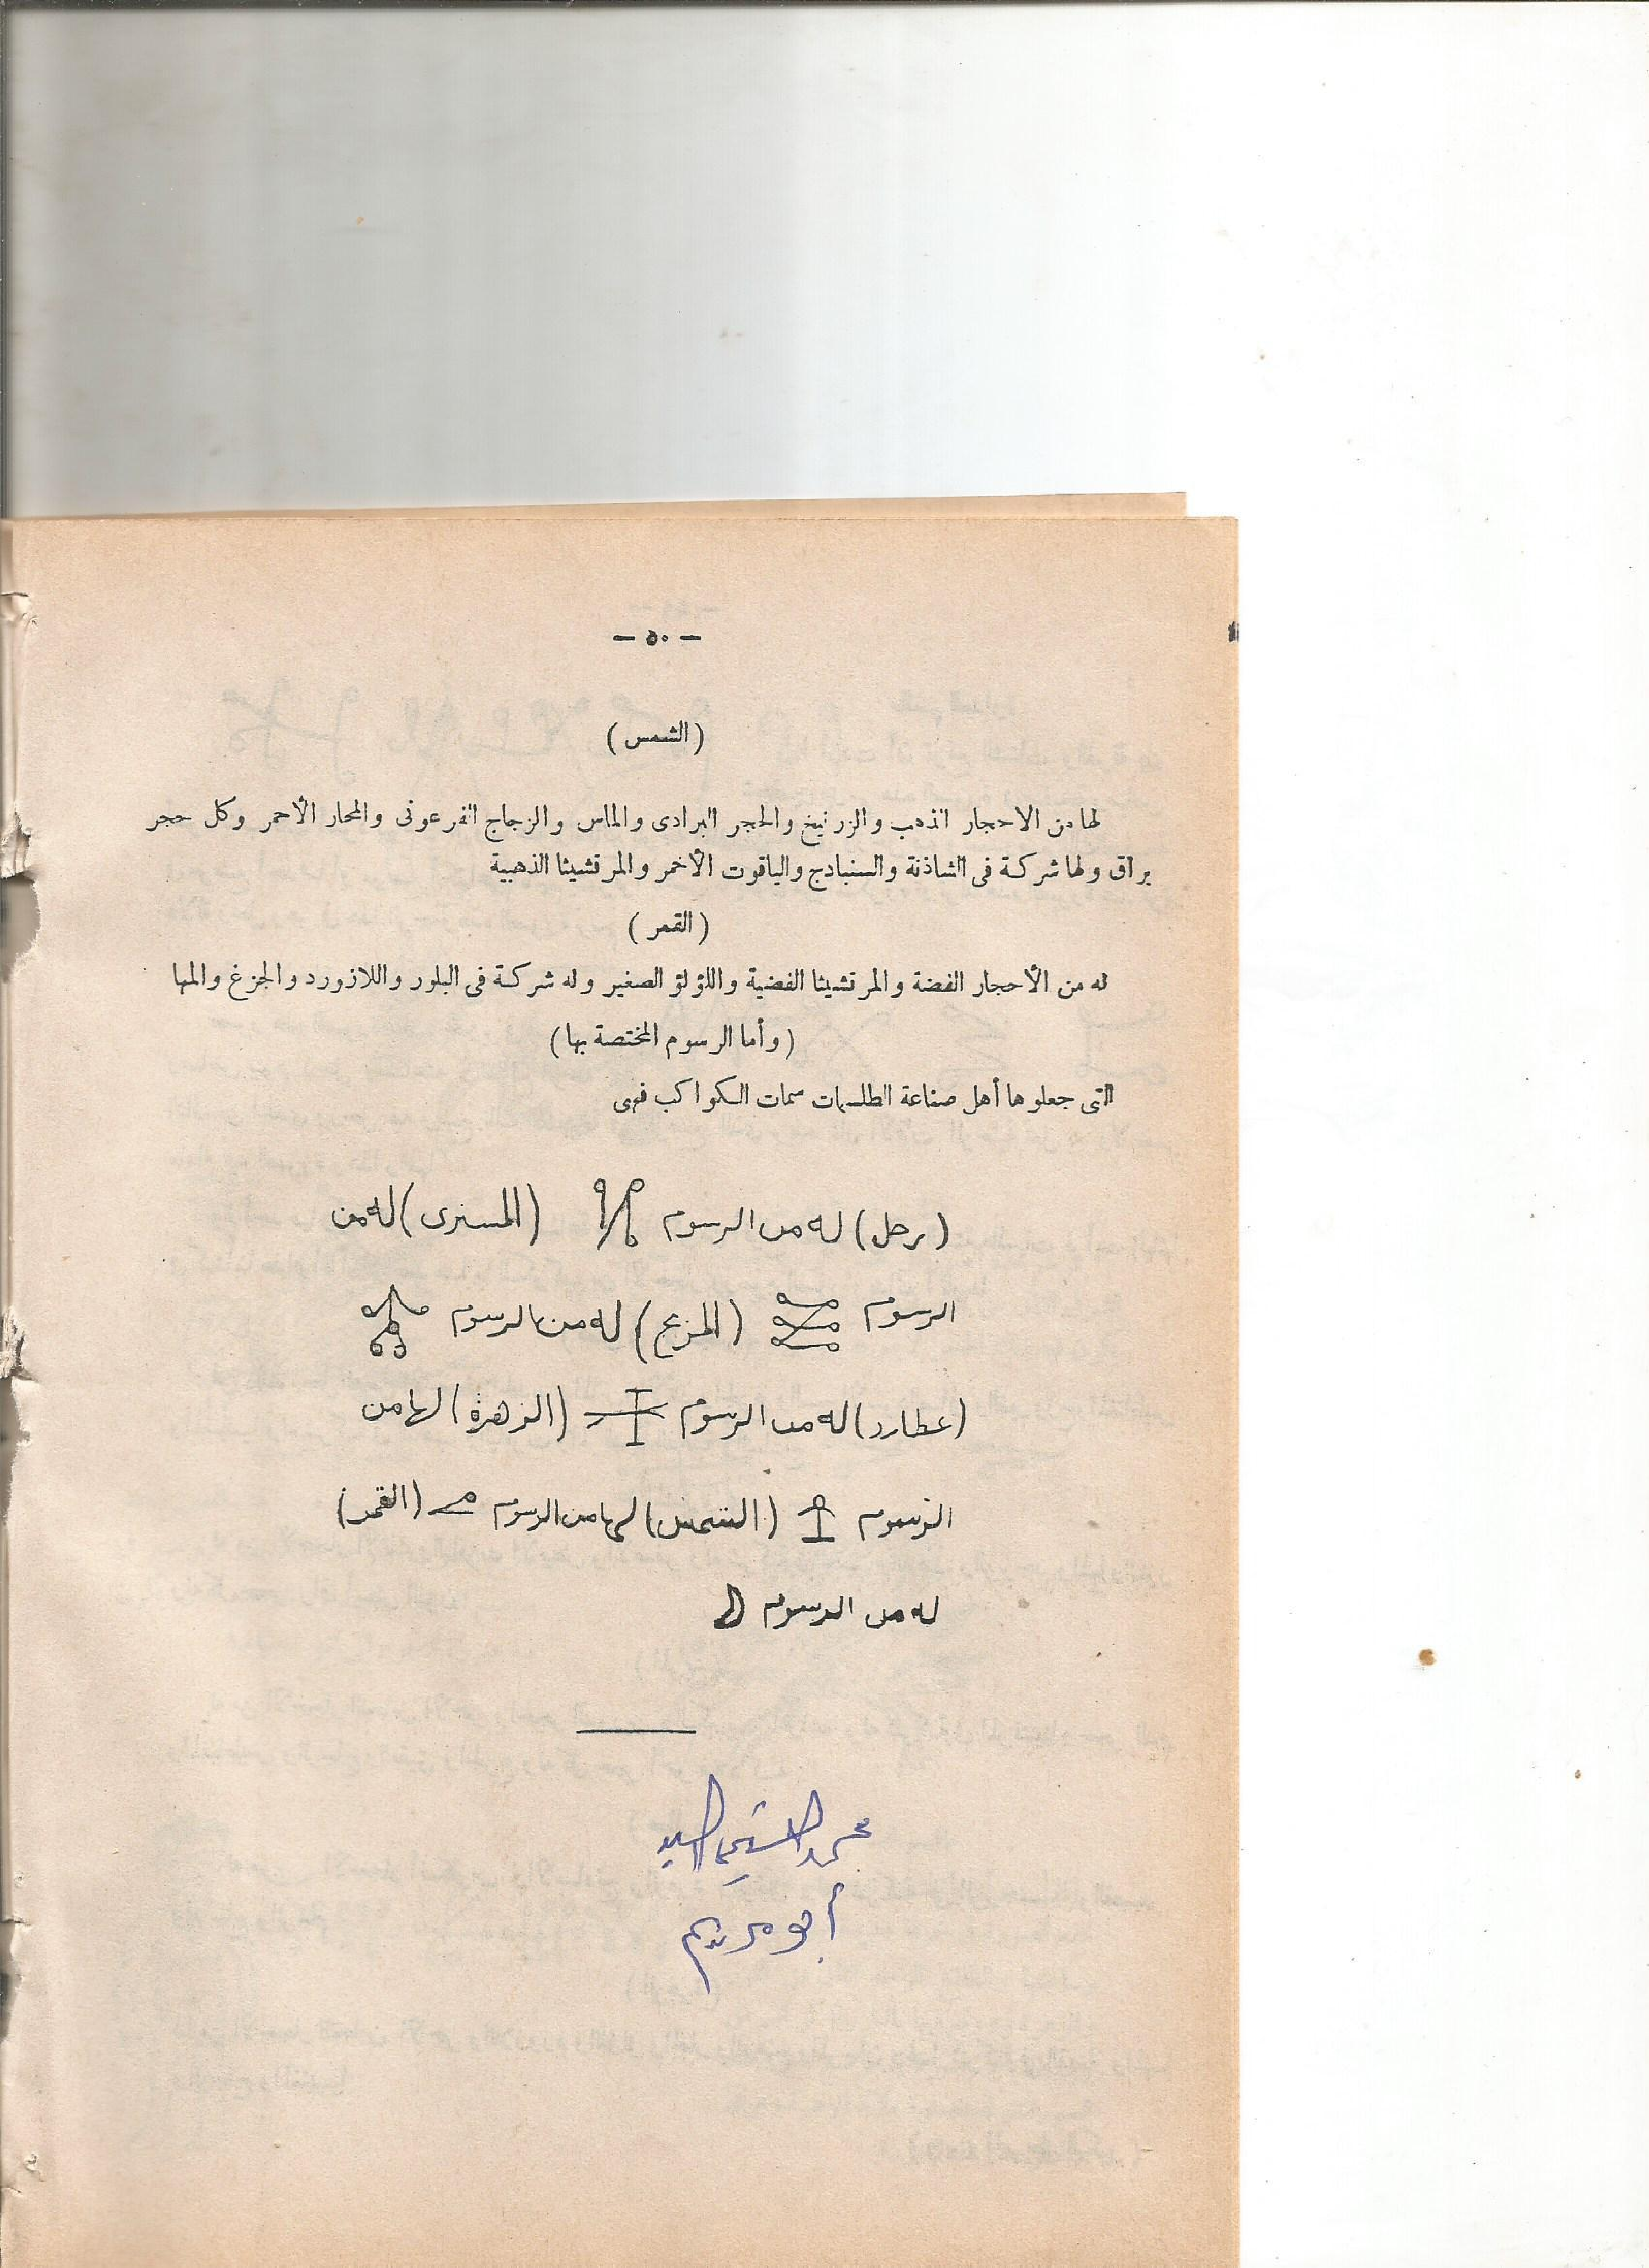 — ٥٠ —
( الشمس )
لها من الاحجار الذهب والزرنيخ والحجر البرادى والماس والزجاج الفرعونى والمحار الأحمر وكل حجر
براق ولها شركة فى الشاذنة والسنبادج والياقوت الأحمر والمرقشيثا الذهبية
( القمر )
له من الأحجار الفضة والمرقشيثا الفضية واللؤلؤ الصغير وله شركة فى البلور واللازورد والجزع والمها
( وأما الرسوم المختصة بها )
التى جعلوها أهل صناعة الطلسمات سمات الكواكب فهى
( زحل ) له من الرسوم ( المشترى ) له من
الرسوم ( المريخ ) له من الرسوم
( عطارد ) له من الرسوم ( الزهرة ) لها من
الرسوم ( الشمس ) لها من الرسوم ( القمر )
له من الرسوم
محمد السيد
أبو مريم